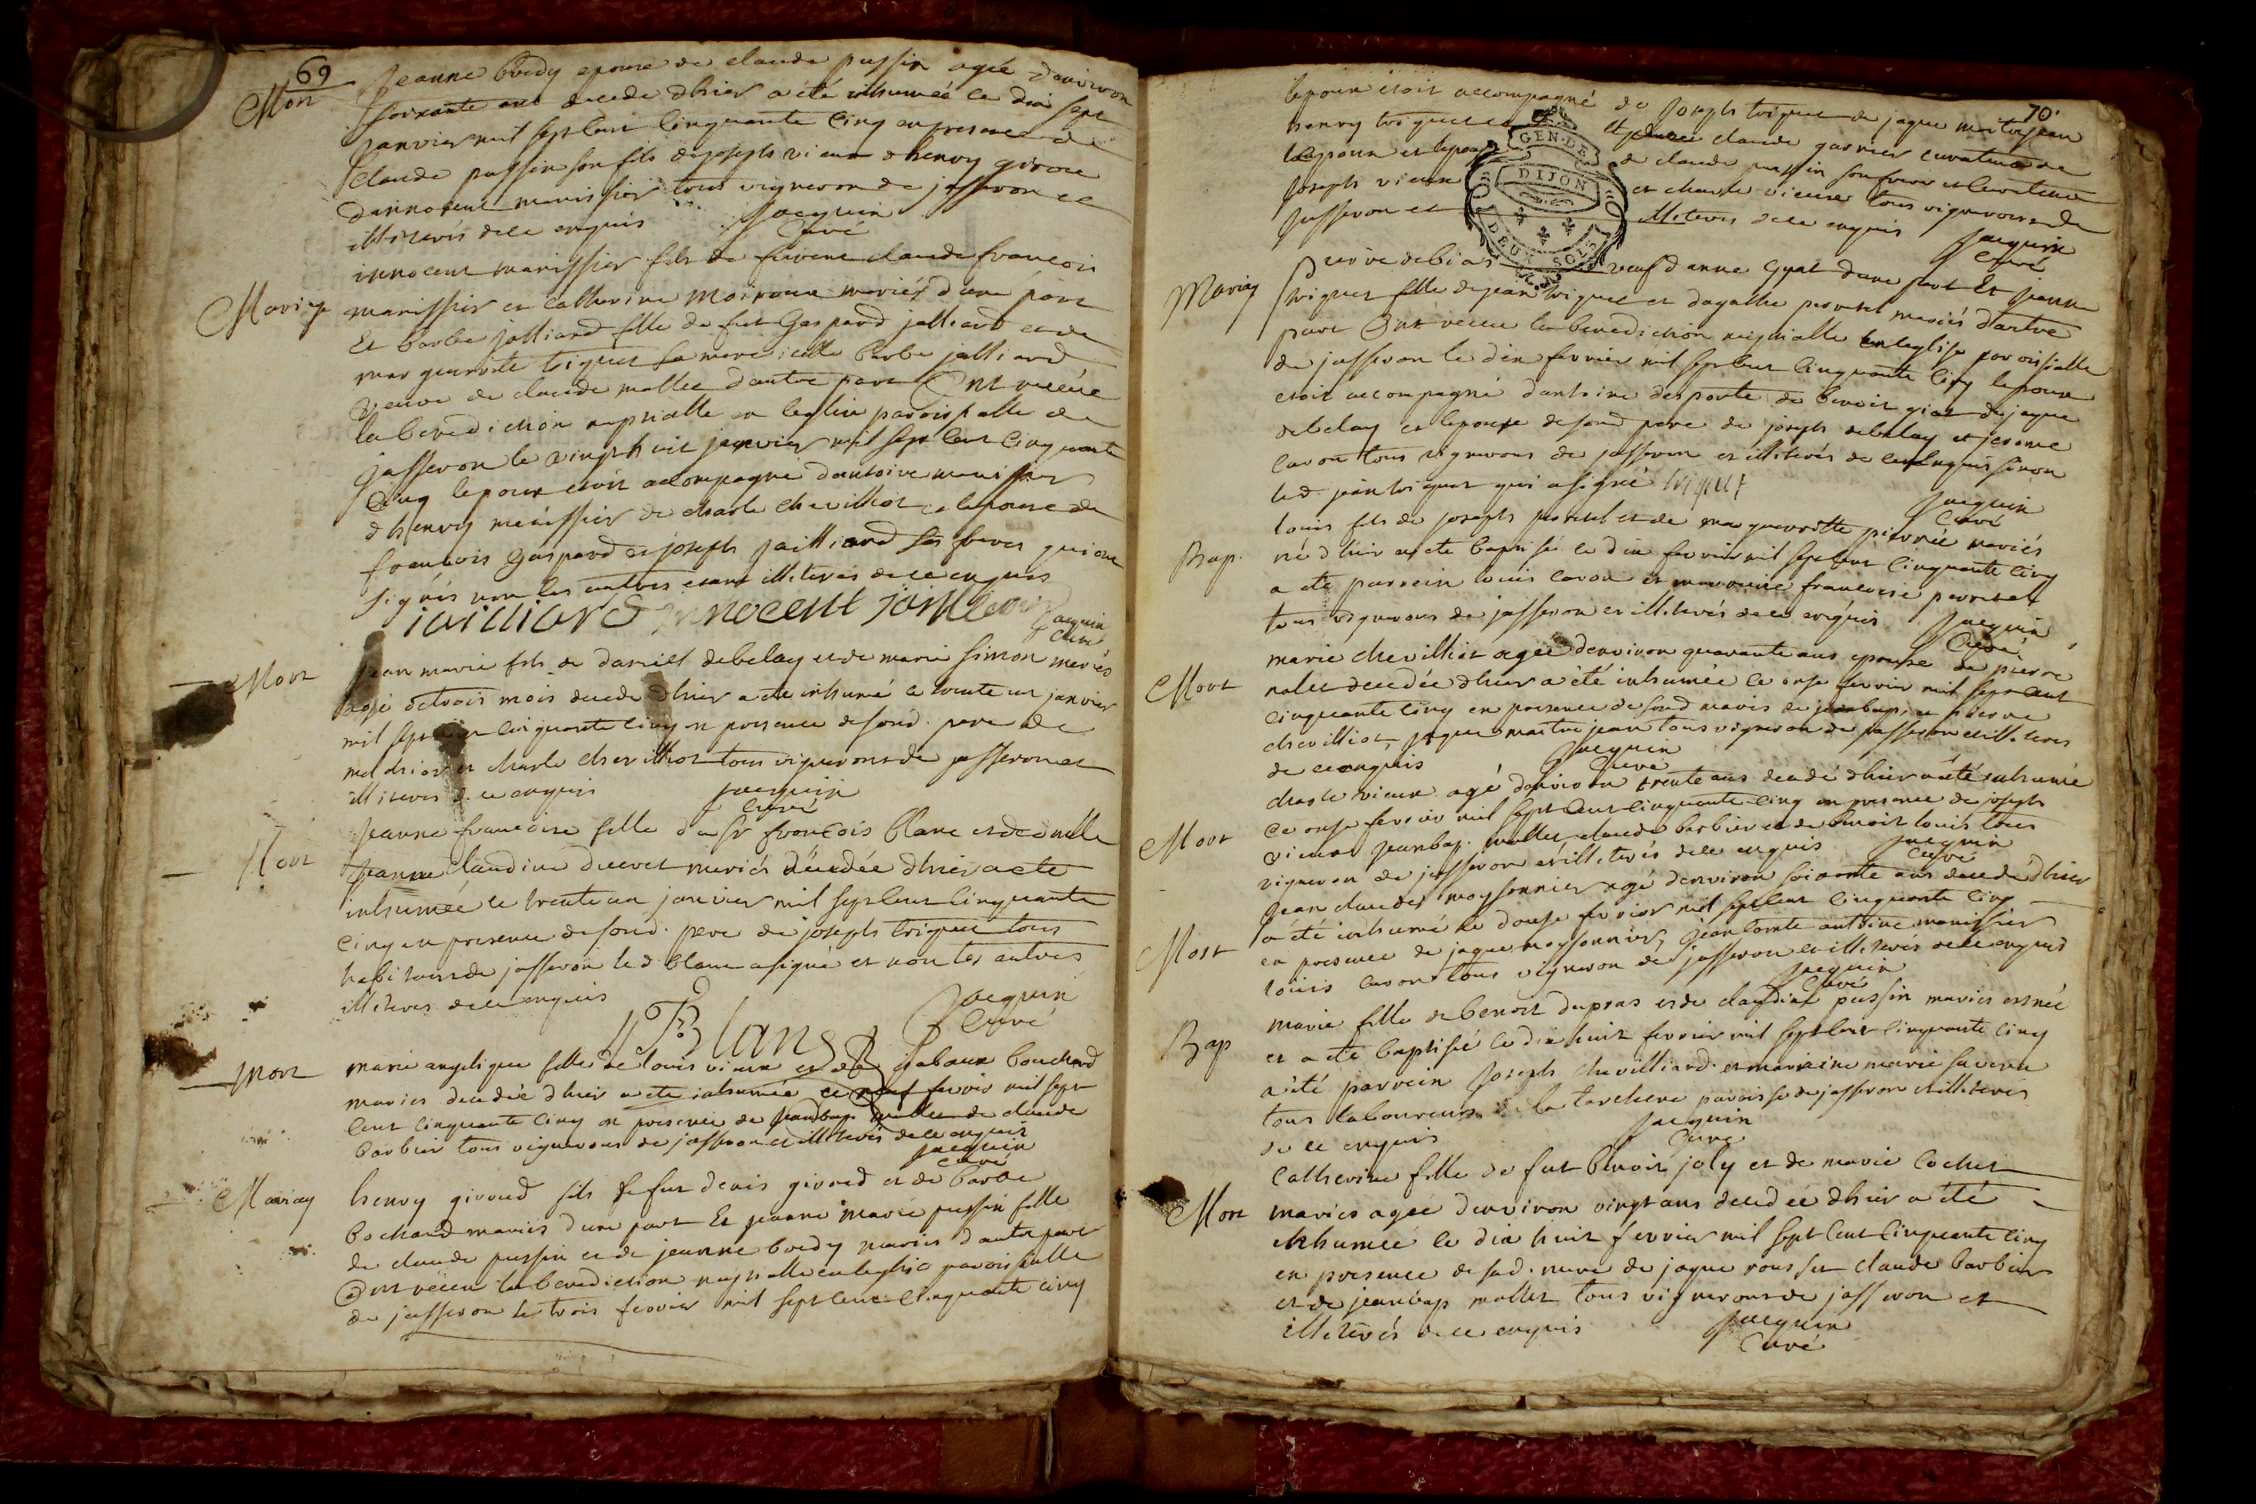 69
Mort
Jeanne bredy epouse de claude pussin agée d'environ
soixante ans decede d'hier a été inhumée ce dix sept
janvier mil sept cent cinquante cinq en presence de
claude pussin son fils de joseph vieux d henry giroud
d'innocent manissier tous vigneron de jasseron et
illiterés de ce enquis Jacquin
Curé
Mariage
innocent manissier fils de furent claude francois
manissier et catherine moiroux mariés d'une part
Et barbe jalliard fille de fut Gaspard jalliard et de
marguerite triquet sa mere icelle barbe jalliard
vieuve de claude mollet d'autre part Ont receue
la benediction nuptialle en leglise paroissialle de
jasseron le vingt huit janvier mil sept cent cinquante
Cinq lepoux etoit acompagné d'antoine manissier
d henry manissier de charle chevilliot et lepouse de
francois Gaspard et joseph jailliard ses freres qui ont
signés non les autres etant illiterés de ce enquis
jailliard innocent
Jacquin
Curé
Mort
jean marie fils de daniel debelay et de marie simon mariés
agé de trois mois decede d'hier a été inhumé le trente un janvier
mil sept cent cinquante cinq en presence de sond. pere de
et charle chevilliot tous vignerons de jasseron et
illiterés de ce enquis Jacquin
Curé
Mort
Jeanne francoise fille du sr francois blanc et de dmlle
jeanne claudine ducret mariés decedée d'hier a eté
inhumée le trente un janvier mil sept cent cinquante
cinq en presence de sond. pere de joseph triquet tous
habitans de jasseron led. blanc a signé et non les autres
illiterés de ce enquis Jacquin
Curé
Blanc
mort
marie angelique fille de louis vieux et de isabeau bouchard
mariés decedée d'hier a eté inhumée ce neuf fevrier mil sept
cent cinquante cinq en presence de jeanbap. mollet de claude
barbier tous vignerons de jasseron et illiterés de ce enquis
Jacquin
Curé
Mariag
henry giroud fils de fut denis giroud et de barbe
bochard mariés d'une part Et jeanne marie pussin fille
de claude pussin et de jeanne bredy mariés d'autre part
Ont receu la benediction nuptialle en leglise paroissialle
de jasseron le trois fevrier mil sept cent cinquante cinq
70
lepoux etoit accompagné de joseph triquet de jaque maitrejean
henry triquet et claude garnier curateur de
lepoux et lepouse de claude pussin son frere et
joseph vieux et charle vieux tous vignerons de
jasseron et illiterés de ce enquis
Jacquin
Curé
GEN. DE
DIJON
DEUX SOLS
Mariag
pierre debias veuf d'anne Gyat d'une part Et jeanne
triquet fille de jean triquet et d'agathe perret mariés d'autre
part Ont receu la benediction nuptialle en leglise paroissialle
de jasseron le dix fevrier mil sept cent cinquante cinq lepoux
etoit accompagné d'antoine desporte de benoit de jaque
debelay et lepouse de sond pere de joseph debelay et jerome
cavon tous vignerons de jasseron et illiterés de ce enquis sinon
led. jean triquet qui a signé triquet
Jacquin
Curé
Bap.
louis fils de joseph perret et de marguerite mariés
né d'hier a eté baptisé le dix fevrier mil sept cent cinquante cinq
a eté parrein louis cavon et marreine francoise perret
tous vignerons de jasseron et illiterés de ce enquis Jacquin
Curé
Mort
marie chevilliot agée d'environ quarante ans epouse de pierre
decedée d'hier a été inhumée ce onse fevrier mil sept cent
cinquante cinq en presence de sond maris de jeanbap. et pierre
chevilliot, jaque maitrejean tous vigneron de jasseron et illiterés
de ce enquis Jacquin
Curé
Mort
charle vieux agé d'environ trente ans decedé d'hier a été inhumé
ce onse fevrier mil sept cent cinquante cinq en presence de joseph
vieux jeanbap. mollet claude barbier et de benoit louis tous
vigneron de jasseron et illiterés de ce enquis Jacquin
Curé
Mort
Jean claude moysonnier agé d'environ soixante ans decedé d'hier
a été inhumé le douse fevrier mil sept cent cinquante cinq
en presence de jaque moysonnier, jean comte antoine manissier
louis cavon tous vigneron de jasseron et illiterés de ce enquis
Jacquin
Curé
Bap
marie fille de benoit dupras et de claudine pussin mariés est née
et a eté baptisée le dix huit fevrier mil sept cent cinquante cinq
a été parrein joseph chevilliard et marreine marie
tous laboureurs de la tarchere paroisse de jasseron et illiterés
de ce enquis Jacquin
Curé
Mort
Catherine fille de fut benoit joly et de marie cochet
mariés agée d'environ vingt ans decedée d'hier a été
inhumée le dix huit fevrier mil sept cent cinquante cinq
en presence de sad. mere de jaque rousset claude barbier
et de jeanbap mollet tous vignerons de jasseron et
illiterés de ce enquis Jacquin
Curé